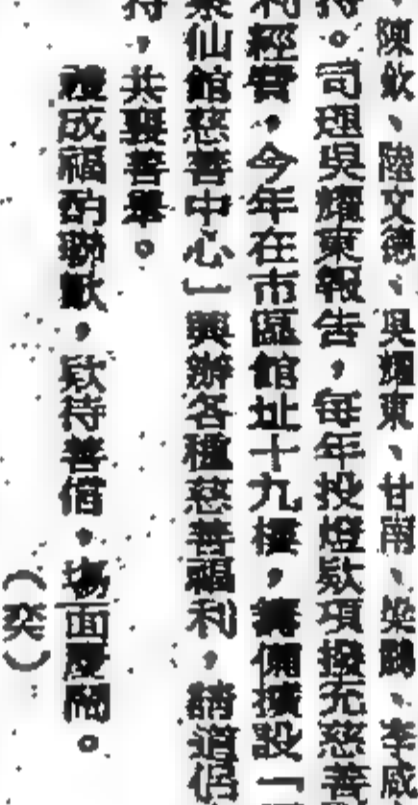 、陳欽、陸文德、吳耀東、甘南、梁鵬、李咸
。司理吳耀東報告，每年投燈款項撥充慈善
利經費，今年在市區館址十九樓，籌備擴設「
仙館慈善中心」興辦各種慈善福利，請道侶
持，共襄善舉。
禮成福酌聯歡，款待善信，場面慶鬧。
（奕）